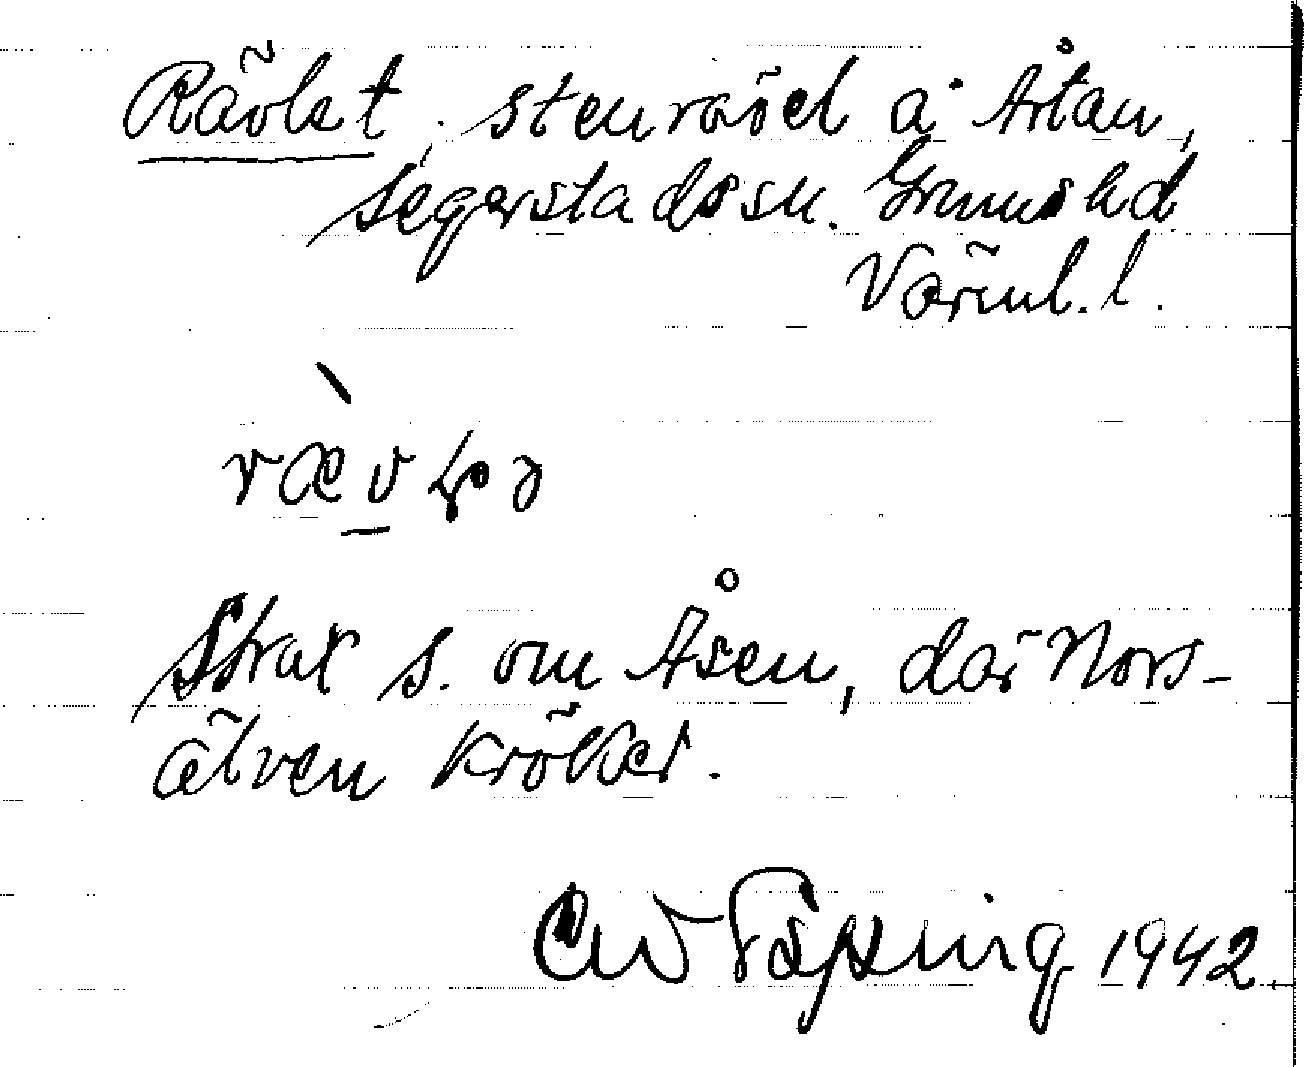 Rävlet, stenrösel å Årtan,
Segerstads sn. Grums hd
Värml. l.
rævɭə
Strax s. om Åsen, där Nors-
älven kröker.
1942